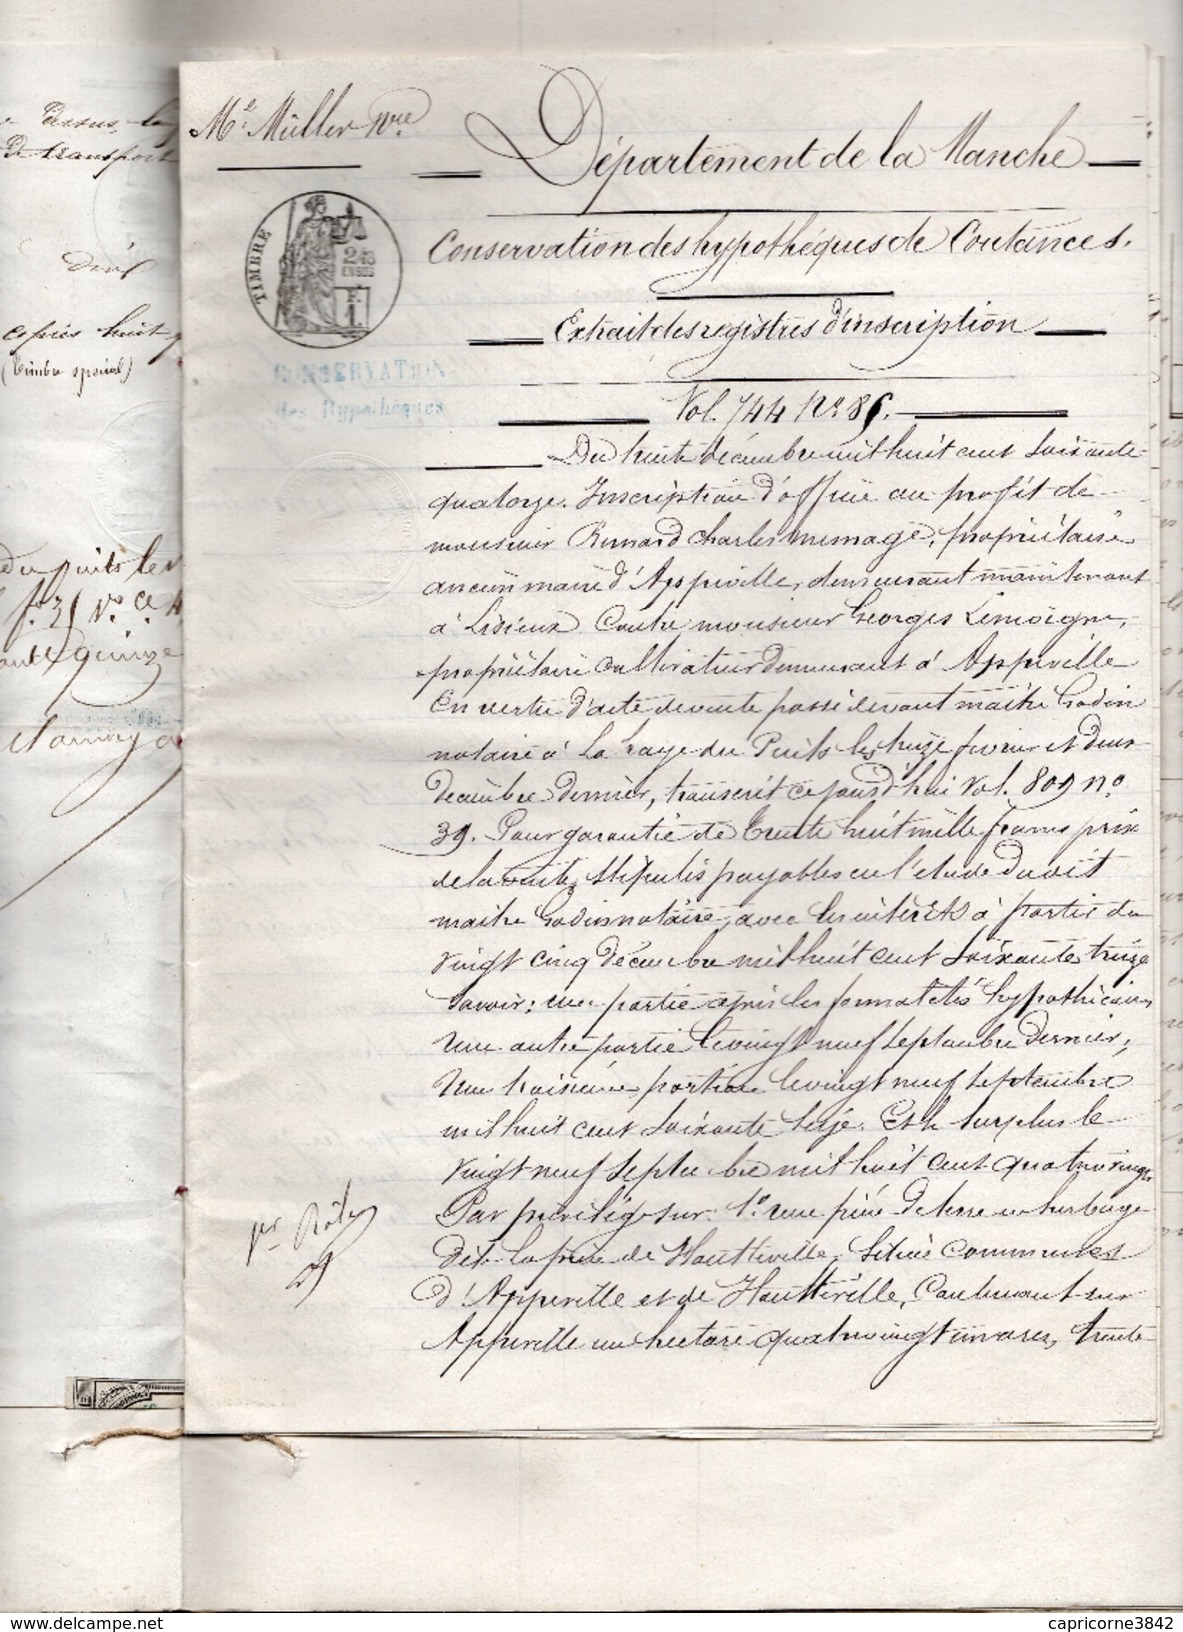 Dessus, le
De transport
Mᵉ Müller Nʳᵉ
Département de la Manche
TIMBRE
2/10
EN SUS
F.
1
Conservation des hypothéques de Coutances.
copies huit
(timbre spécial)
Extrait des registres d'inscription
CONSERVATION
des Hypothèques
Vol. 744 Nº 85.
Du huit décembre mil huit cent soixante
quatorze. Inscription d'office au profit de
monsieur Bernard Charles Mesnage, propriétaire
ancien maire d'Appeville, demeurant maintenant
à Lisieux Contre monsieur Georges Lemoigne,
propriétaire cultivateur demeurant à Appeville
En vertu d'acte de vente passé devant maitre Godin
notaire à La haye du Puits les treize février et deux
Décembre dernier, transcrit ce jourd'hui Vol. 809 nº
39. Pour garantie de trente huit mille francs prix
de la vente, stipulés payables en l'étude dudit
maitre Godin notaire, avec les intérêts à partir du
vingt cinq décembre mil huit cent soixante treize
Savoir: une partie après les formalités hypothécaires
Une autre partie le vingt neuf septembre dernier,
Une troisième portion le vingt neuf septembre
mil huit cent soixante seize. Et le surplus le
vingt neuf septembre mil huit cent quatre vingt
Par privilège sur: 1º une pièce de terre en herbage
dite la pièce de Houtteville, située communes
d'Appeville et de Houtteville, Contenant sur
Appeville un hectare quatre vingt un ares, trente
du puits le
fº 31 Vº Cᵉ
quinze
1er Rôle
www.delcampe.net
capricorne3842